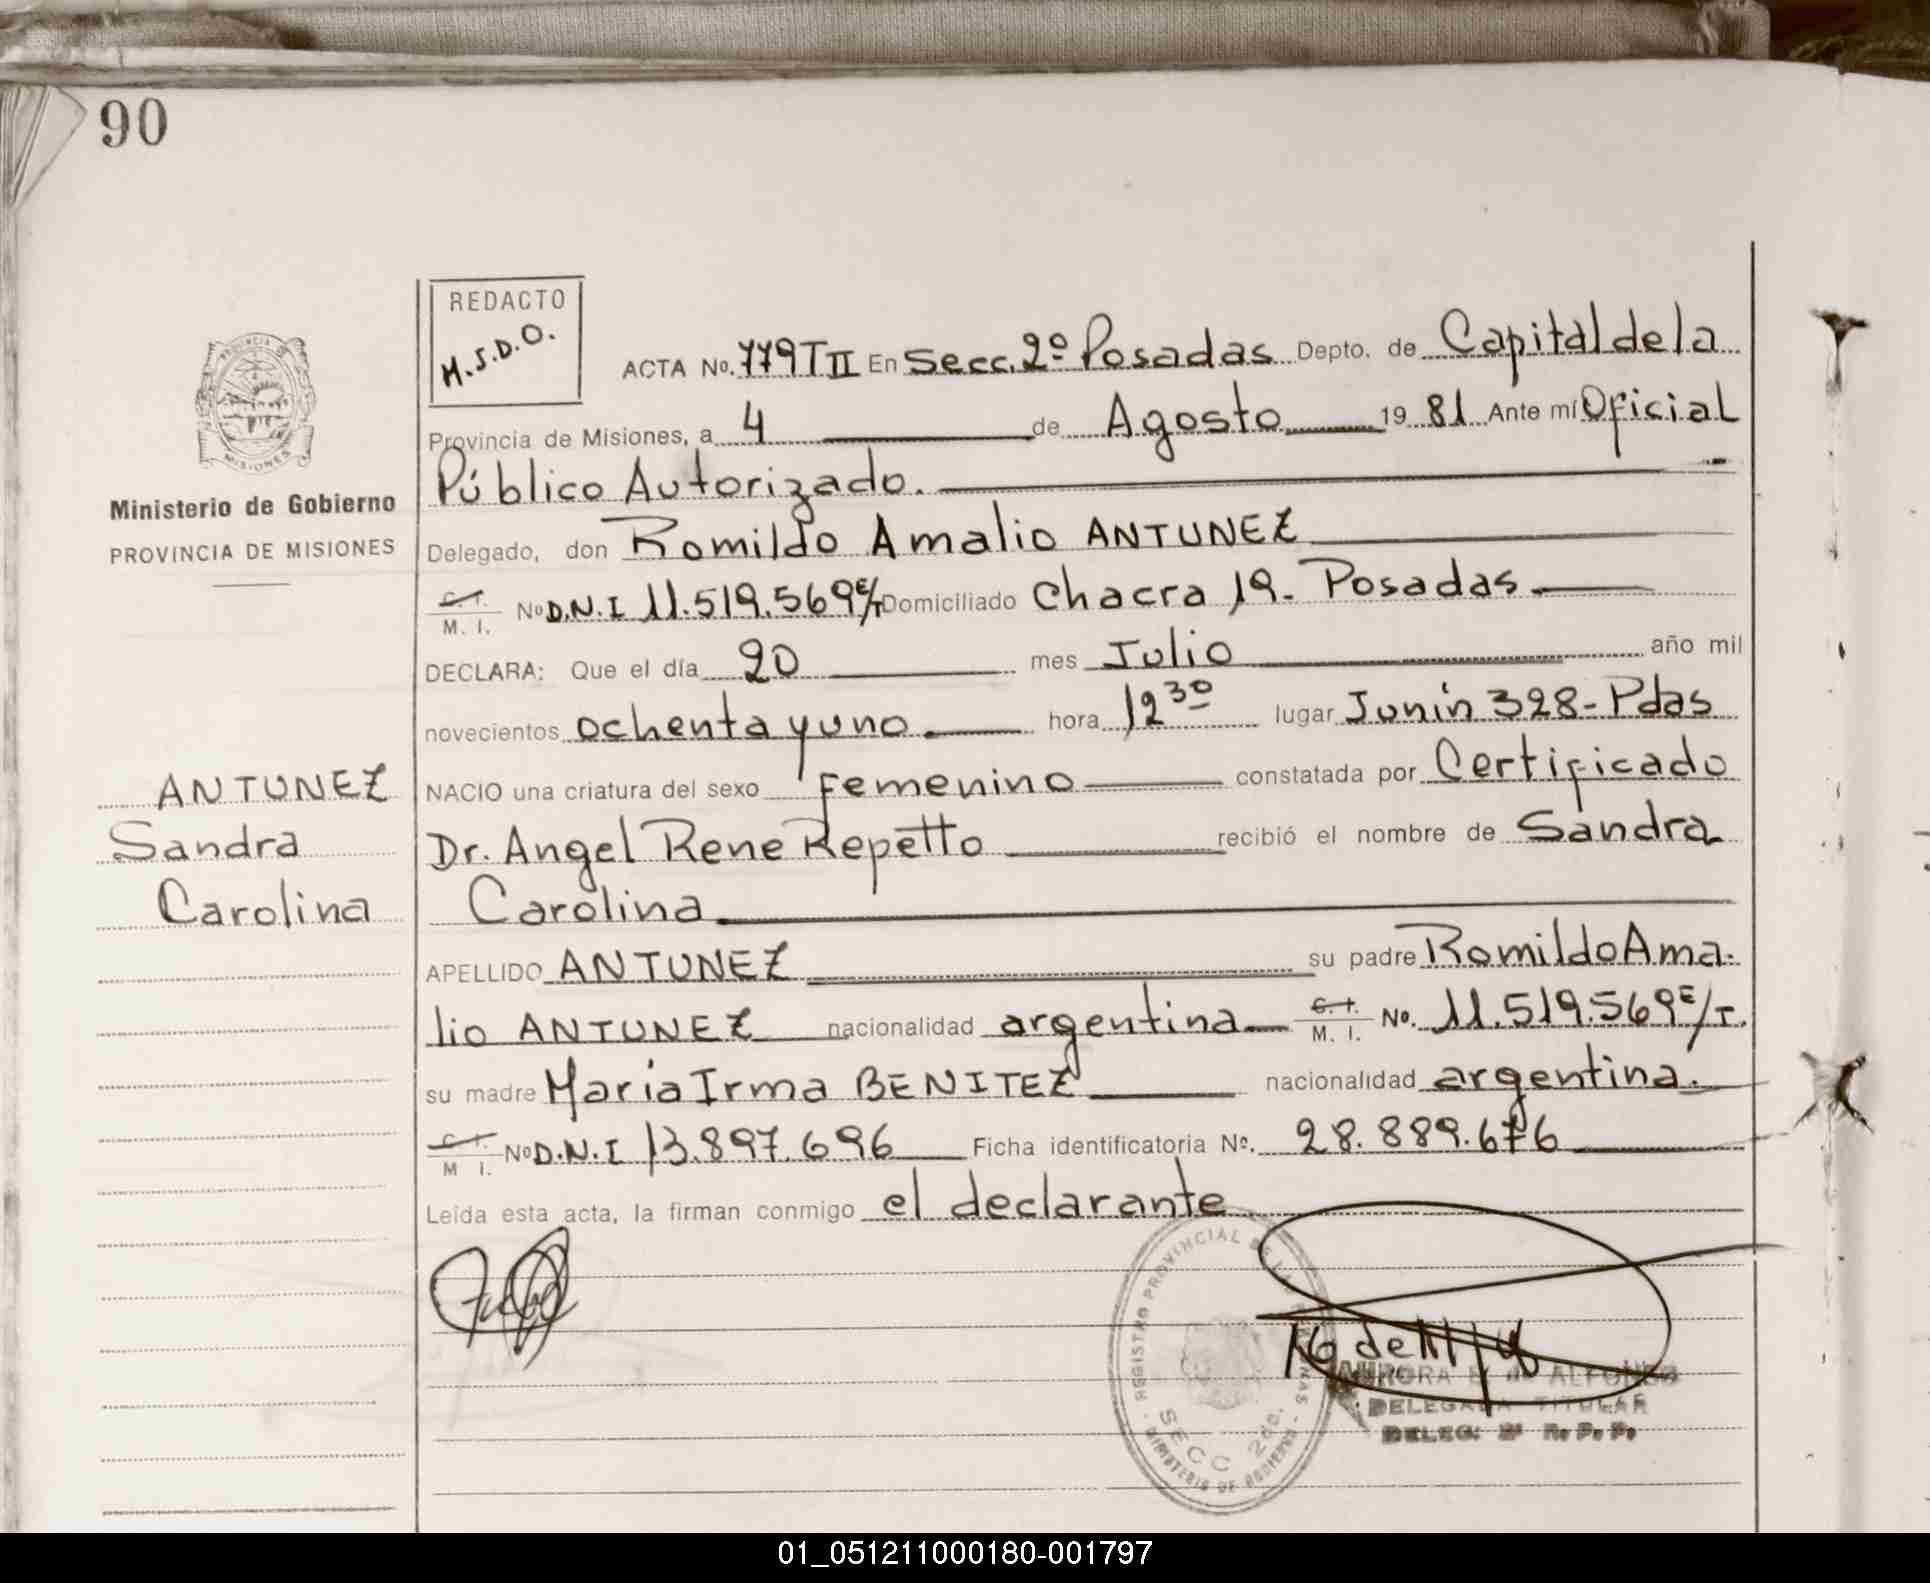 90
REDACTO
M.S.D.O.
PROVINCIA DE
MISIONES
Ministerio de Gobierno
PROVINCIA DE MISIONES
ANTUNEZ
Sandra
Carolina
ACTA No. 779 T II En Secc. 2º Posadas Depto. de Capital de la
Provincia de Misiones, a 4 de Agosto 19 81 Ante mí Oficial
Público Autorizado.
Delegado, don Romildo Amalio ANTUNEZ
C. I.
M. I. No D.N.I 11.519.569 E/T Domiciliado Chacra 19 - Posadas
DECLARA: Que el día 20 mes Julio año mil
novecientos ochenta y uno hora 12 30 lugar Junin 328 - Pdas
NACIO una criatura del sexo Femenino constatada por Certificado
Dr. Angel Rene Repetto recibió el nombre de Sandra
Carolina
APELLIDO ANTUNEZ su padre Romildo Ama-
lio ANTUNEZ nacionalidad argentina C. I. M. I. No. 11.519.569 E/T.
su madre Maria Irma BENITEZ nacionalidad argentina.
C. I.
M I. No D.N.I 13.897.696 Ficha identificatoria No. 28.889.676
Leída esta acta, la firman conmigo el declarante
REGISTRO PROVINCIAL DE LAS PERSONAS
SECC 2da.
MINISTERIO DE GOBIERNO
AURORA E. de ALFONSO
DELEGADA TITULAR
DELEG. 2ª R. P. P.
01_051211000180-001797